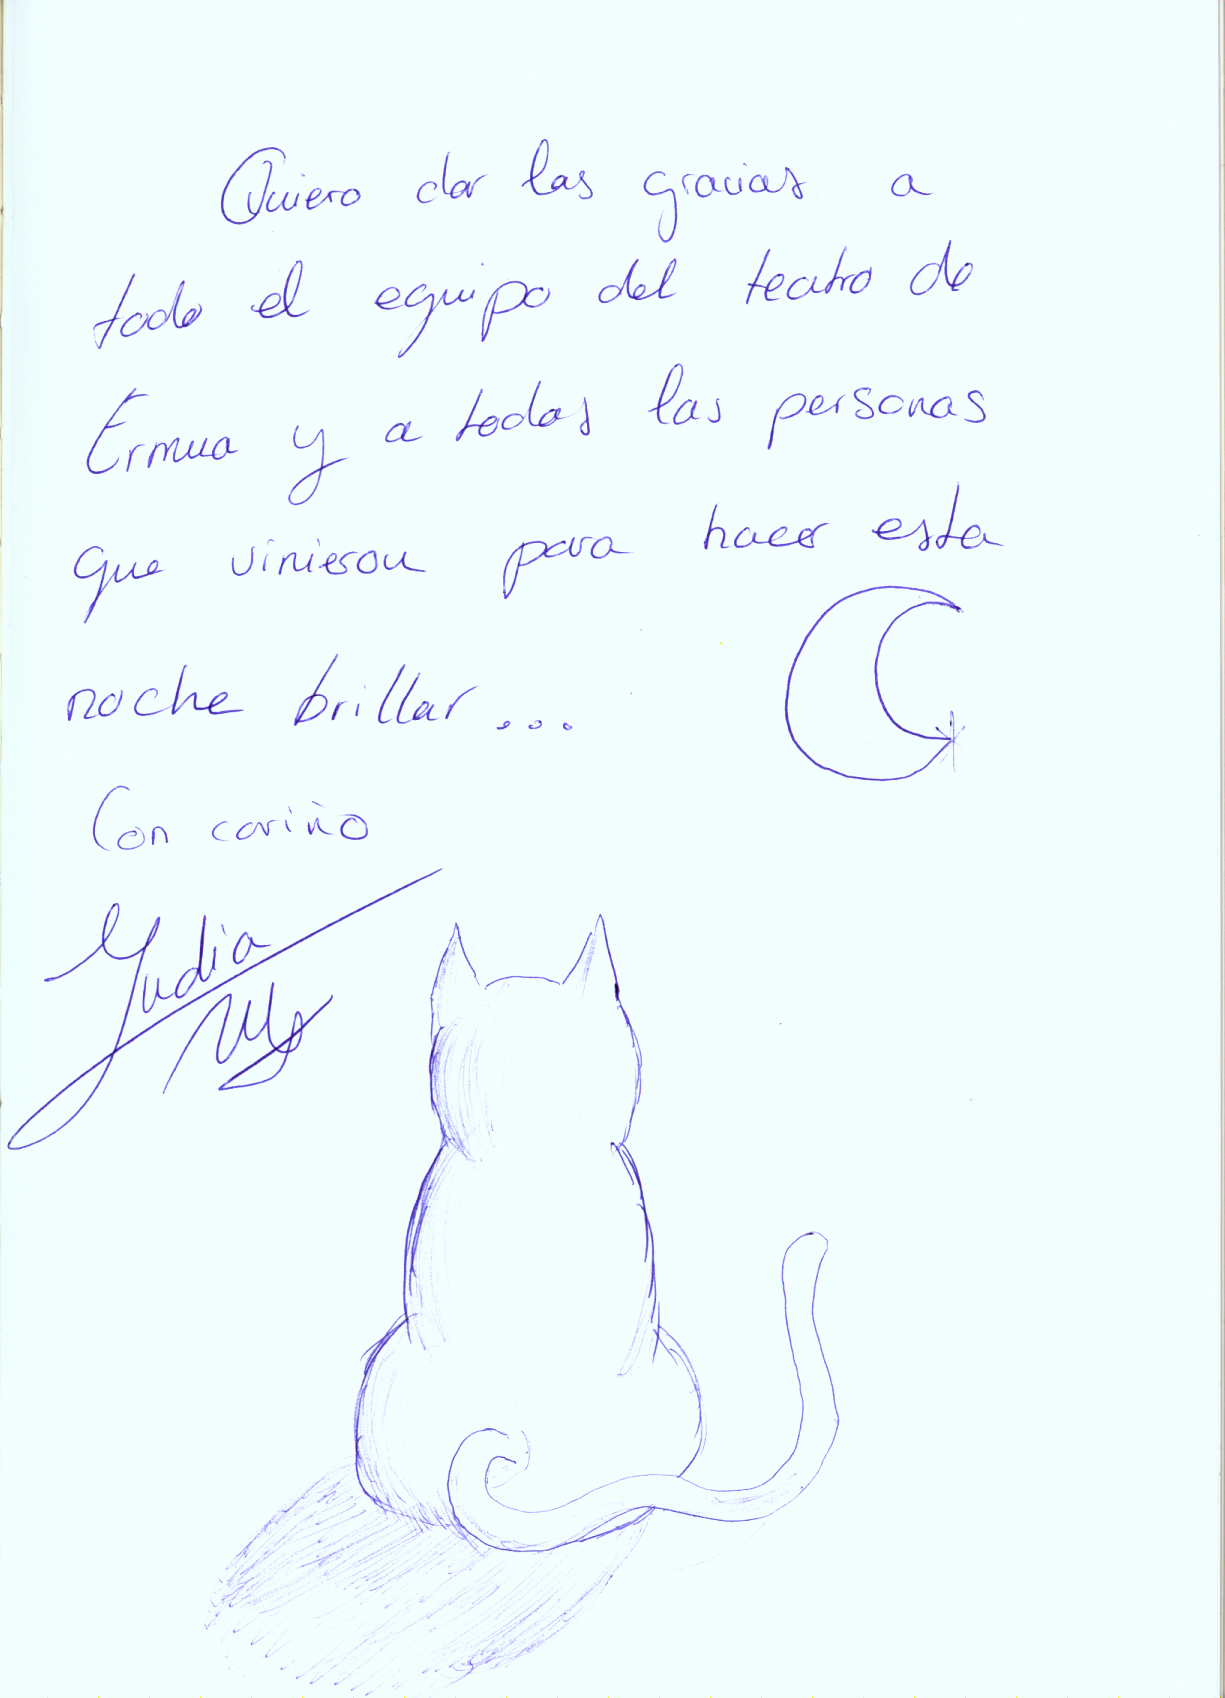 Quiero dar las gracias a
todo el equipo del teatro de
Ermua y a todas las personas
que vinieron para hacer esta
noche brillar...
Con cariño
Yudia